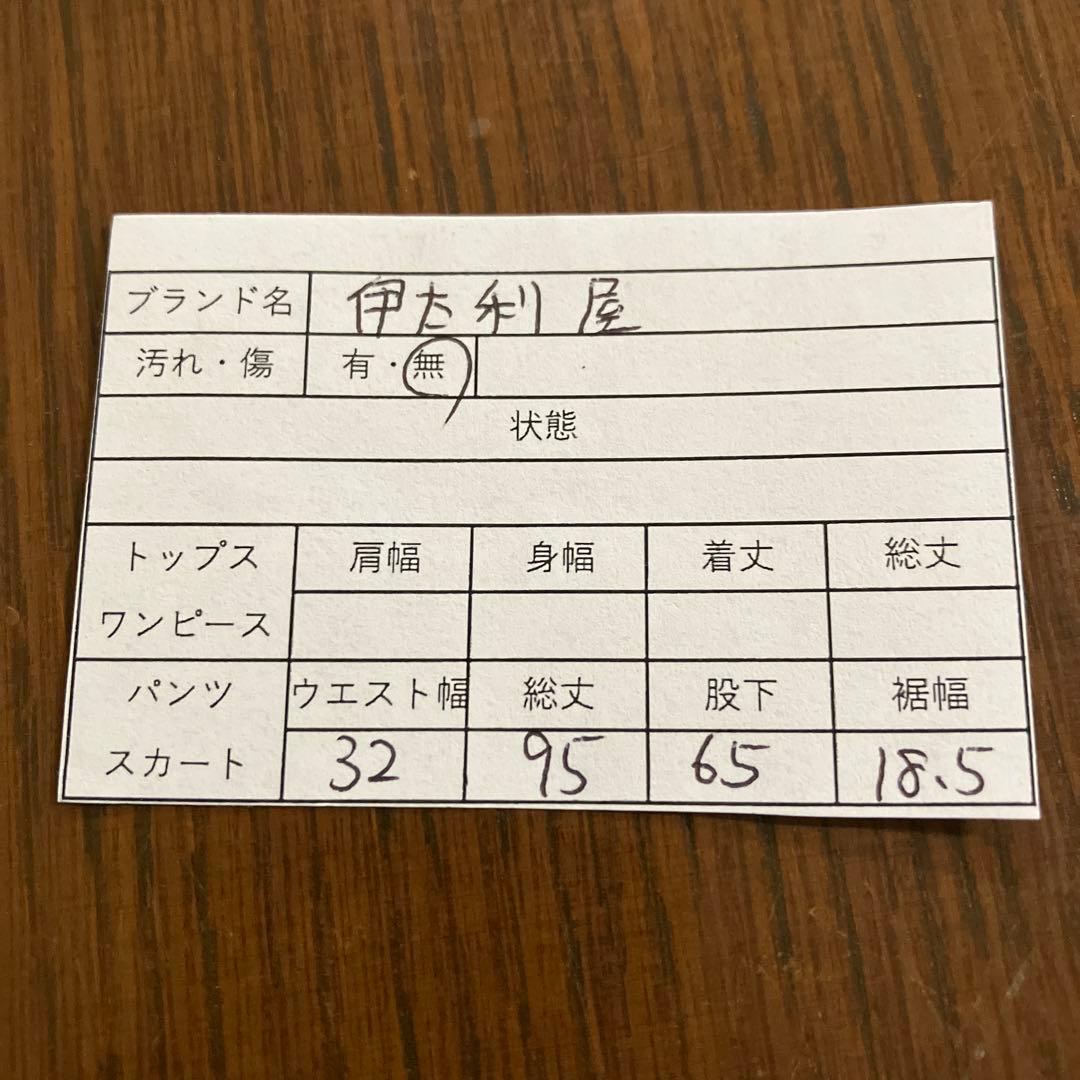 ブランド名 伊太利屋
汚れ・傷 有・無
状態
トップス 肩幅 身幅 着丈 総丈
ワンピース
パンツ ウエスト幅 総丈 股下 裾幅
スカート 32 95 65 18.5